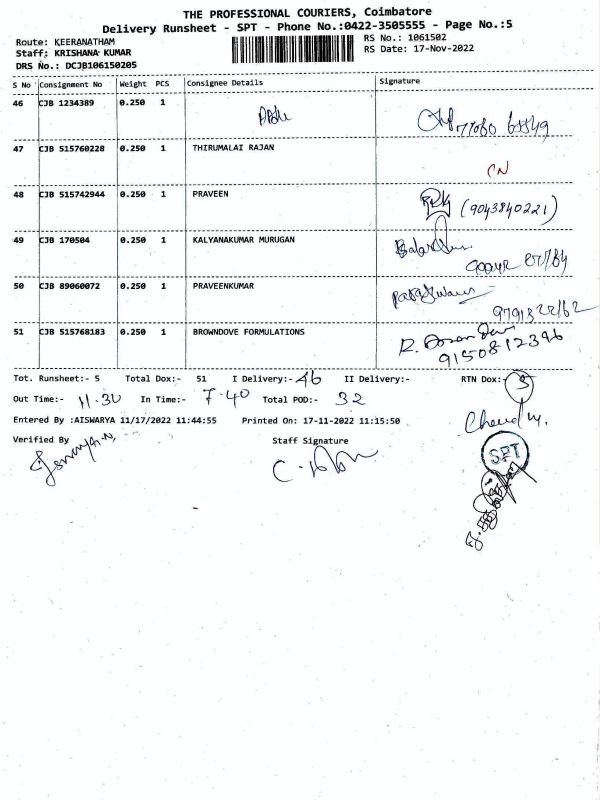 THE PROFESSIONAL COURIERS, Coimbatore
Delivery Runsheet - SPT - Phone No.:0422-3505555 - Page No.:5
Route: KEERANATHAM
RS No.: 1061502
Staff; KRISHANA KUMAR
RS Date: 17-Nov-2022
DRS No.: DCJB106150205
S No Consignment No Weight PCS Consignee Details Signature
46 CJB 1234389 0.250 1
47 CJB 515760228 0.250 1 THIRUMALAI RAJAN
CN
48 CJB 515742944 0.250 1 PRAVEEN
(9043840221)
49 CJB 170504 0.250 1 KALYANAKUMAR MURUGAN
50 CJB 89060072 0.250 1 PRAVEENKUMAR
51 CJB 515768183 0.250 1 BROWNDOVE FORMULATIONS
9150812396
Tot. Runsheet:- 5 Total Dox:- 51 I Delivery:- 46 II Delivery:- RTN Dox:- 5
Out Time:- 11.30 In Time:- 7.40 Total POD:- 32
Entered By :AISWARYA 11/17/2022 11:44:55 Printed On: 17-11-2022 11:15:50
Verified By Staff Signature
SPT